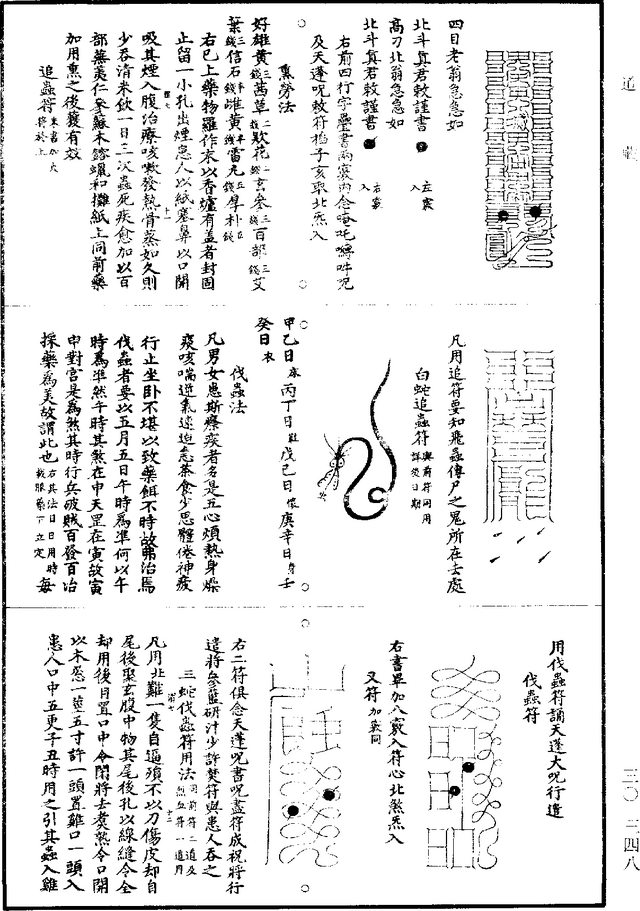 道藏
四目老翁急急如
北斗真君敕謹書 左竅入
高刀北翁急急如
北斗真君敕謹書 右竅入
右前四行字疊書兩竅內念唵吒嚩吽呪
及天蓬呪敕符搯子亥取北炁入
熏勞法
好雄黃三錢茜草二錢欵花二錢玄參三錢百部三錢艾
葉三錢信石半錢雌黃半錢雷丸五錢厚朴五錢
右已上藥物羅作末以香爐有蓋者封固
止留一小孔出煙患人以紙塞鼻以口開
吸其煙入腹治療咳嗽發熱骨蒸如久則
少吞清米飲一日三次蟲死疾愈加以百
部蕪荑仁參蘇木窨蠟和攤紙上同前藥
加用熏之後獲有效
追蟲符 朱書加火符於上
凡用追符要知飛蟲傳尸之鬼所在去處
白蛇追蟲符 與前符同用詳癸日期
甲乙日 丙丁日 戊己日 庚辛日 壬
癸日
伐蟲法
凡男女患斯瘵疾者多是五心煩熱身燥
痰咳喘逆氣速造惫茶食少思體倦神疲
行止坐卧不堪以致藥餌不時故弗治焉
伐蟲者要以五月五日午時為準何以午
時為準然午時其煞在申天罡在寅故寅
申對宮是為煞其時行兵破賊百發百治
採藥為美故謂此也 右其法日日用時載服藥下立定 每
用伐蟲符誦天蓬大呪行遣
伐蟲符
右書畢加八竅入符心北煞炁入
又符 加竅同
右二符俱念天蓬呪書呪盡符成祝將行
遣將參藍研汁少許焚符與患人吞之
三蛇伐蟲符用法 同前符二道及烈血符一道用
凡用北雞一隻自逼殞不以刀傷皮却自
尾後聚玄腹中物其尾後孔以線縫合全
却用後目置口中令閉將去煑熟令口開
以木葱一莖五寸許一頭置雞口一頭入
患人口中五更子丑時用之引其蟲入雞
三〇—三四八